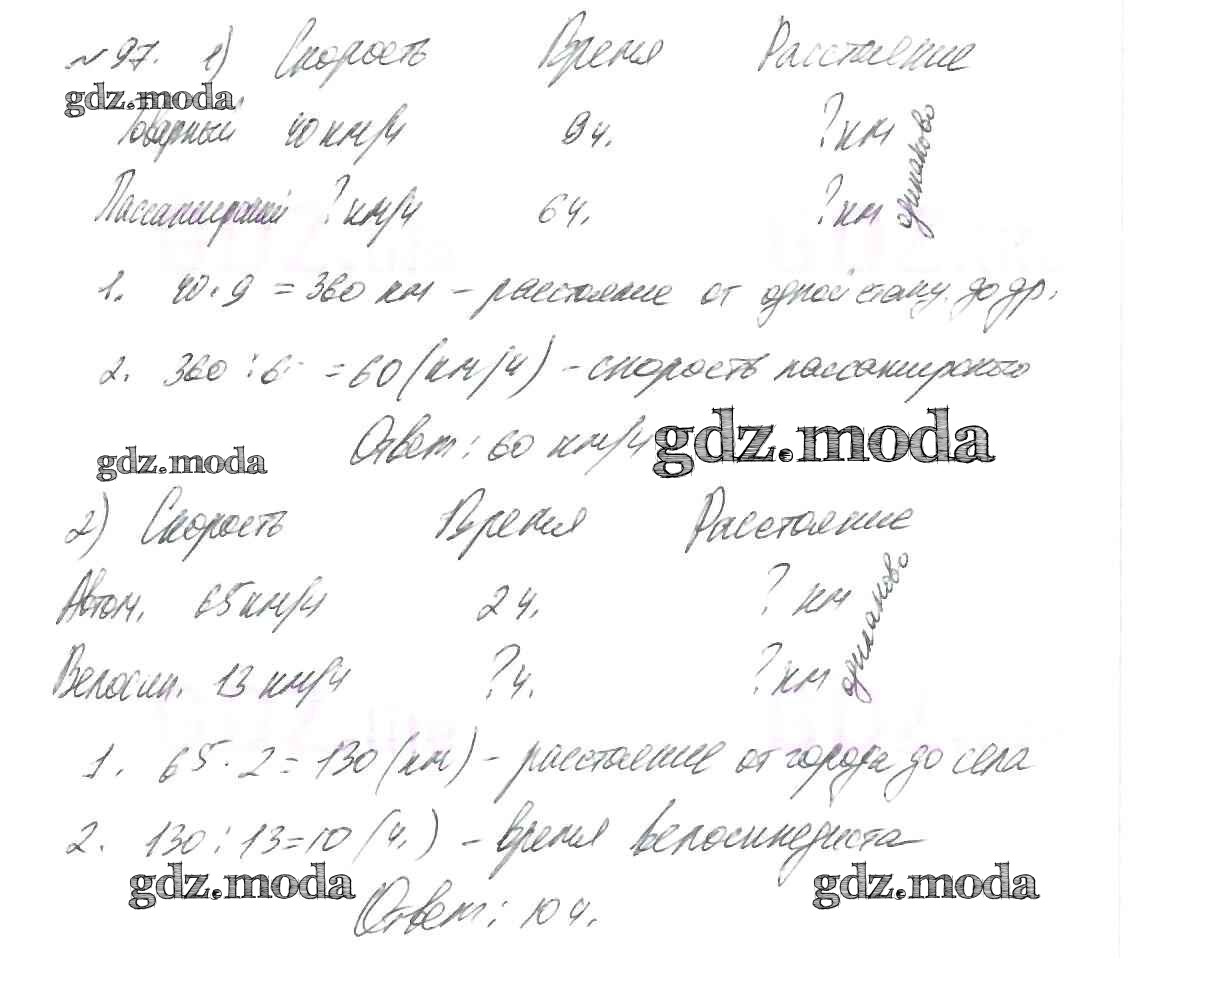 №97. 1) Скорость Время Расстояние
gdz.moda
Товарный 40 км/ч 9 ч. ? км
Пассажирский ? км/ч 6 ч. ? км
одинаково
1. 40 · 9 = 360 км – расстояние от одной станц. до др.
2. 360 : 6 = 60 (км/ч) – скорость пассажирского
Ответ: 60 км/ч
gdz.moda
gdz.moda
2) Скорость Время Расстояние
Автом. 65 км/ч 2 ч. ? км
Велосип. 13 км/ч ? ч. ? км
одинаково
1. 65 · 2 = 130 (км) – расстояние от города до села
2. 130 : 13 = 10 (ч.) – время велосипедиста
gdz.moda
gdz.moda
Ответ: 10 ч.